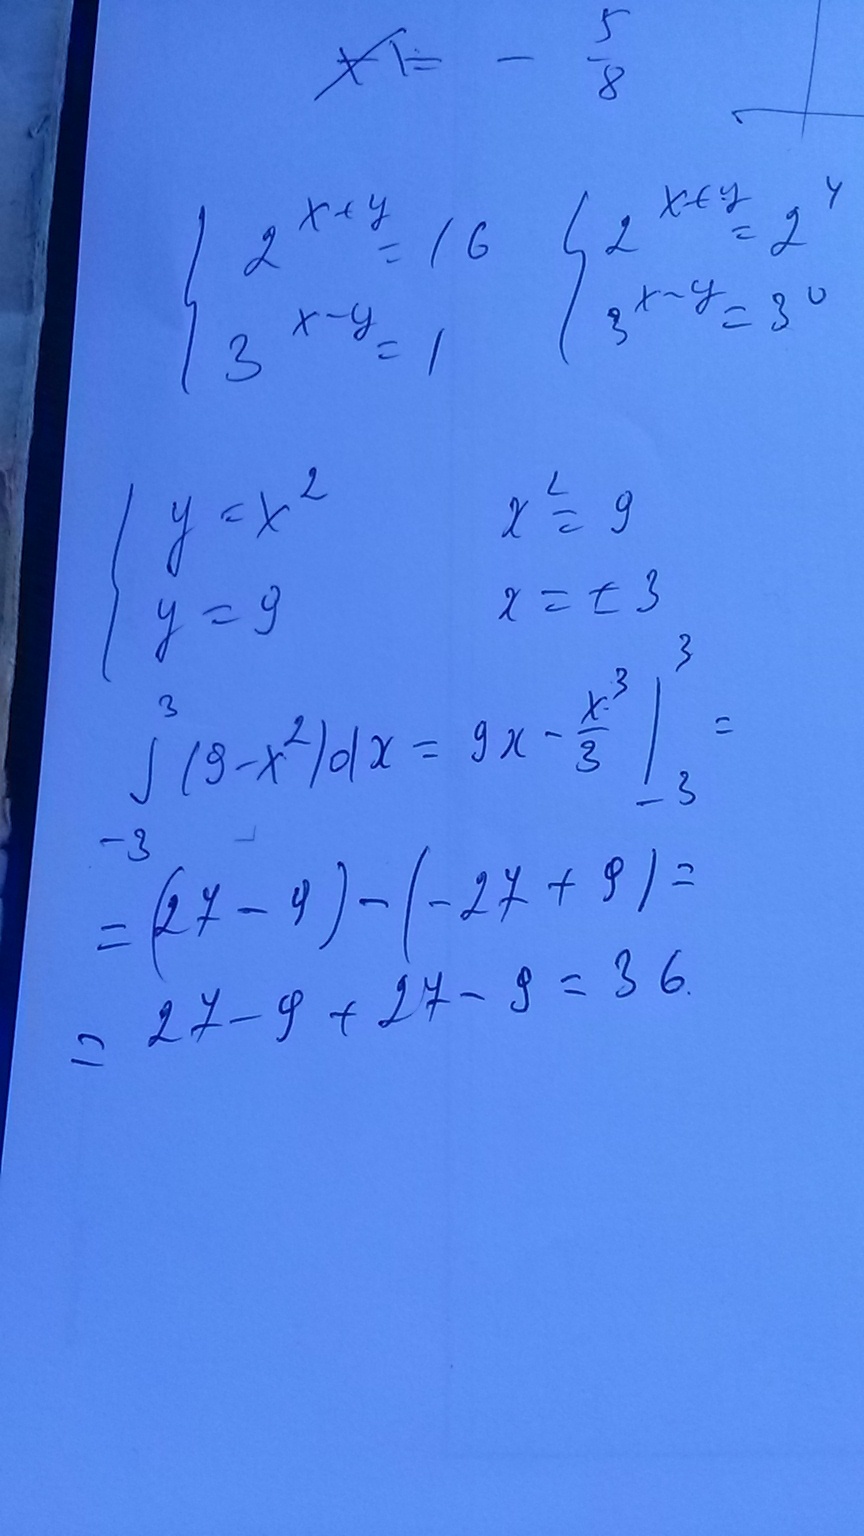 x1= - 5/8
{ 2^(x+y) = 16 { 2^(x+y) = 2^4
3^(x-y) = 1 3^(x-y) = 3^0
{ y = x² x² = 9
y = 9 x = ±3
∫_{-3}^{3} (9-x²)dx = 9x - x³/3 |_{-3}^{3} =
= (27-9)-(-27+9)=
= 27-9+27-9=36.